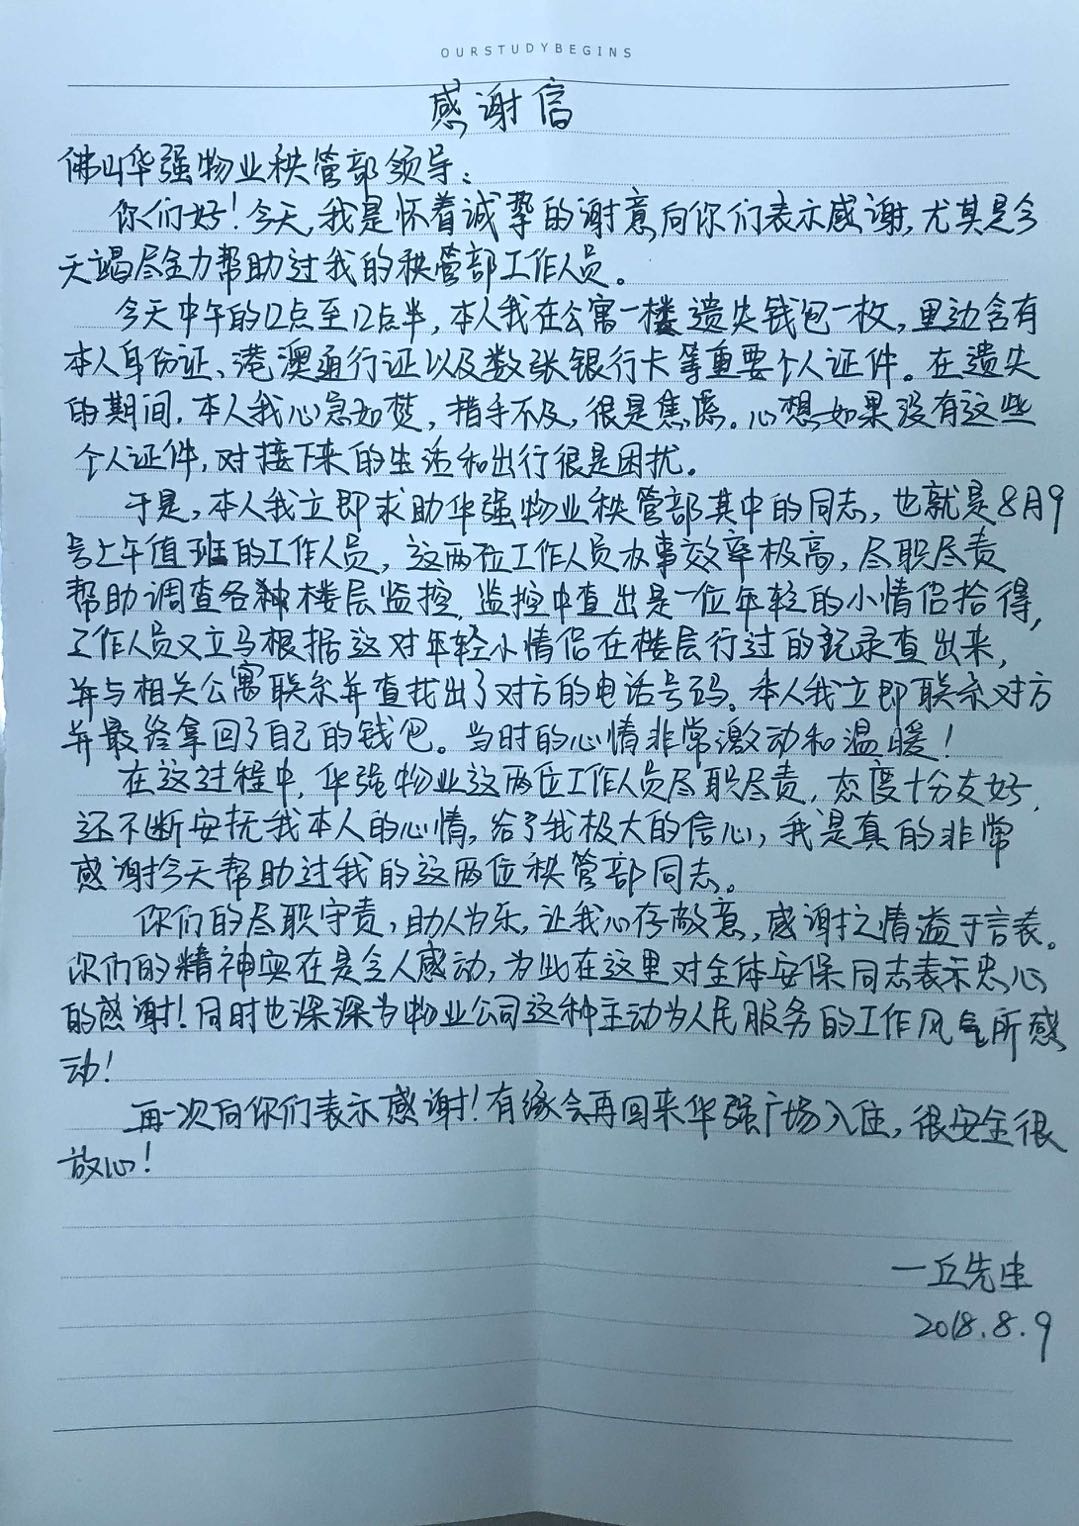 OURSTUDYBEGINS
感谢信
佛山华强物业秩管部领导:
你们好!今天,我是怀着诚挚的谢意向你们表示感谢,尤其是今
天竭尽全力帮助过我的秩管部工作人员。
今天中午的12点至12点半,本人我在公寓一楼遗失钱包一枚,里边含有
本人身份证、港澳通行证以及数张银行卡等重要个人证件。在遗失
的期间,本人我心急如焚,措手不及,很是焦虑。心想如果没有这些
个人证件,对接下来的生活和出行很是困扰。
于是,本人我立即求助华强物业秩管部其中的同志,也就是8月9
号上午值班的工作人员,这两位工作人员办事效率极高,尽职尽责
帮助调查各种楼层监控,监控中查出是一位年轻的小情侣拾得,
工作人员又立马根据这对年轻小情侣在楼层行过的记录查出来,
并与相关公寓联系并查找出了对方的电话号码。本人我立即联系对方
并最终拿回了自己的钱包。当时的心情非常激动和温暖!
在这过程中,华强物业这两位工作人员尽职尽责,态度十分友好,
还不断安抚我本人的心情,给了我极大的信心,我是真的非常
感谢今天帮助过我的这两位秩管部同志。
你们的尽职守责,助人为乐,让我心存敬意,感谢之情溢于言表。
你们的精神实在是令人感动,为此在这里对全体安保同志表示忠心
的感谢!同时也深深为物业公司这种主动为人民服务的工作风气所感
动!
再一次向你们表示感谢!有缘会再回来华强广场入住,很安全很
放心!
一丘先生
2018.8.9